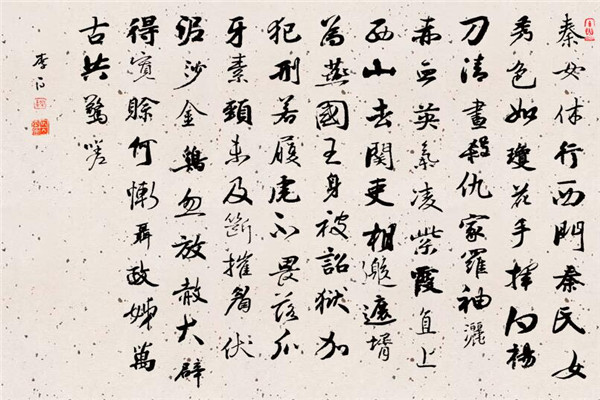 秦女休行西門秦氏女
秀色如瓊花手揮白楊
刀清晝殺仇家羅袖灑
赤血英氣凌紫霞直上
西山去關吏相邀遮壻
為燕國王身被詔獄加
犯刑若履虎不畏落爪
牙素頸未及斷摧眉伏
泥沙金鷄忽放赦大辟
得寬賒何慚聶政姊萬
古共驚嗟
李白